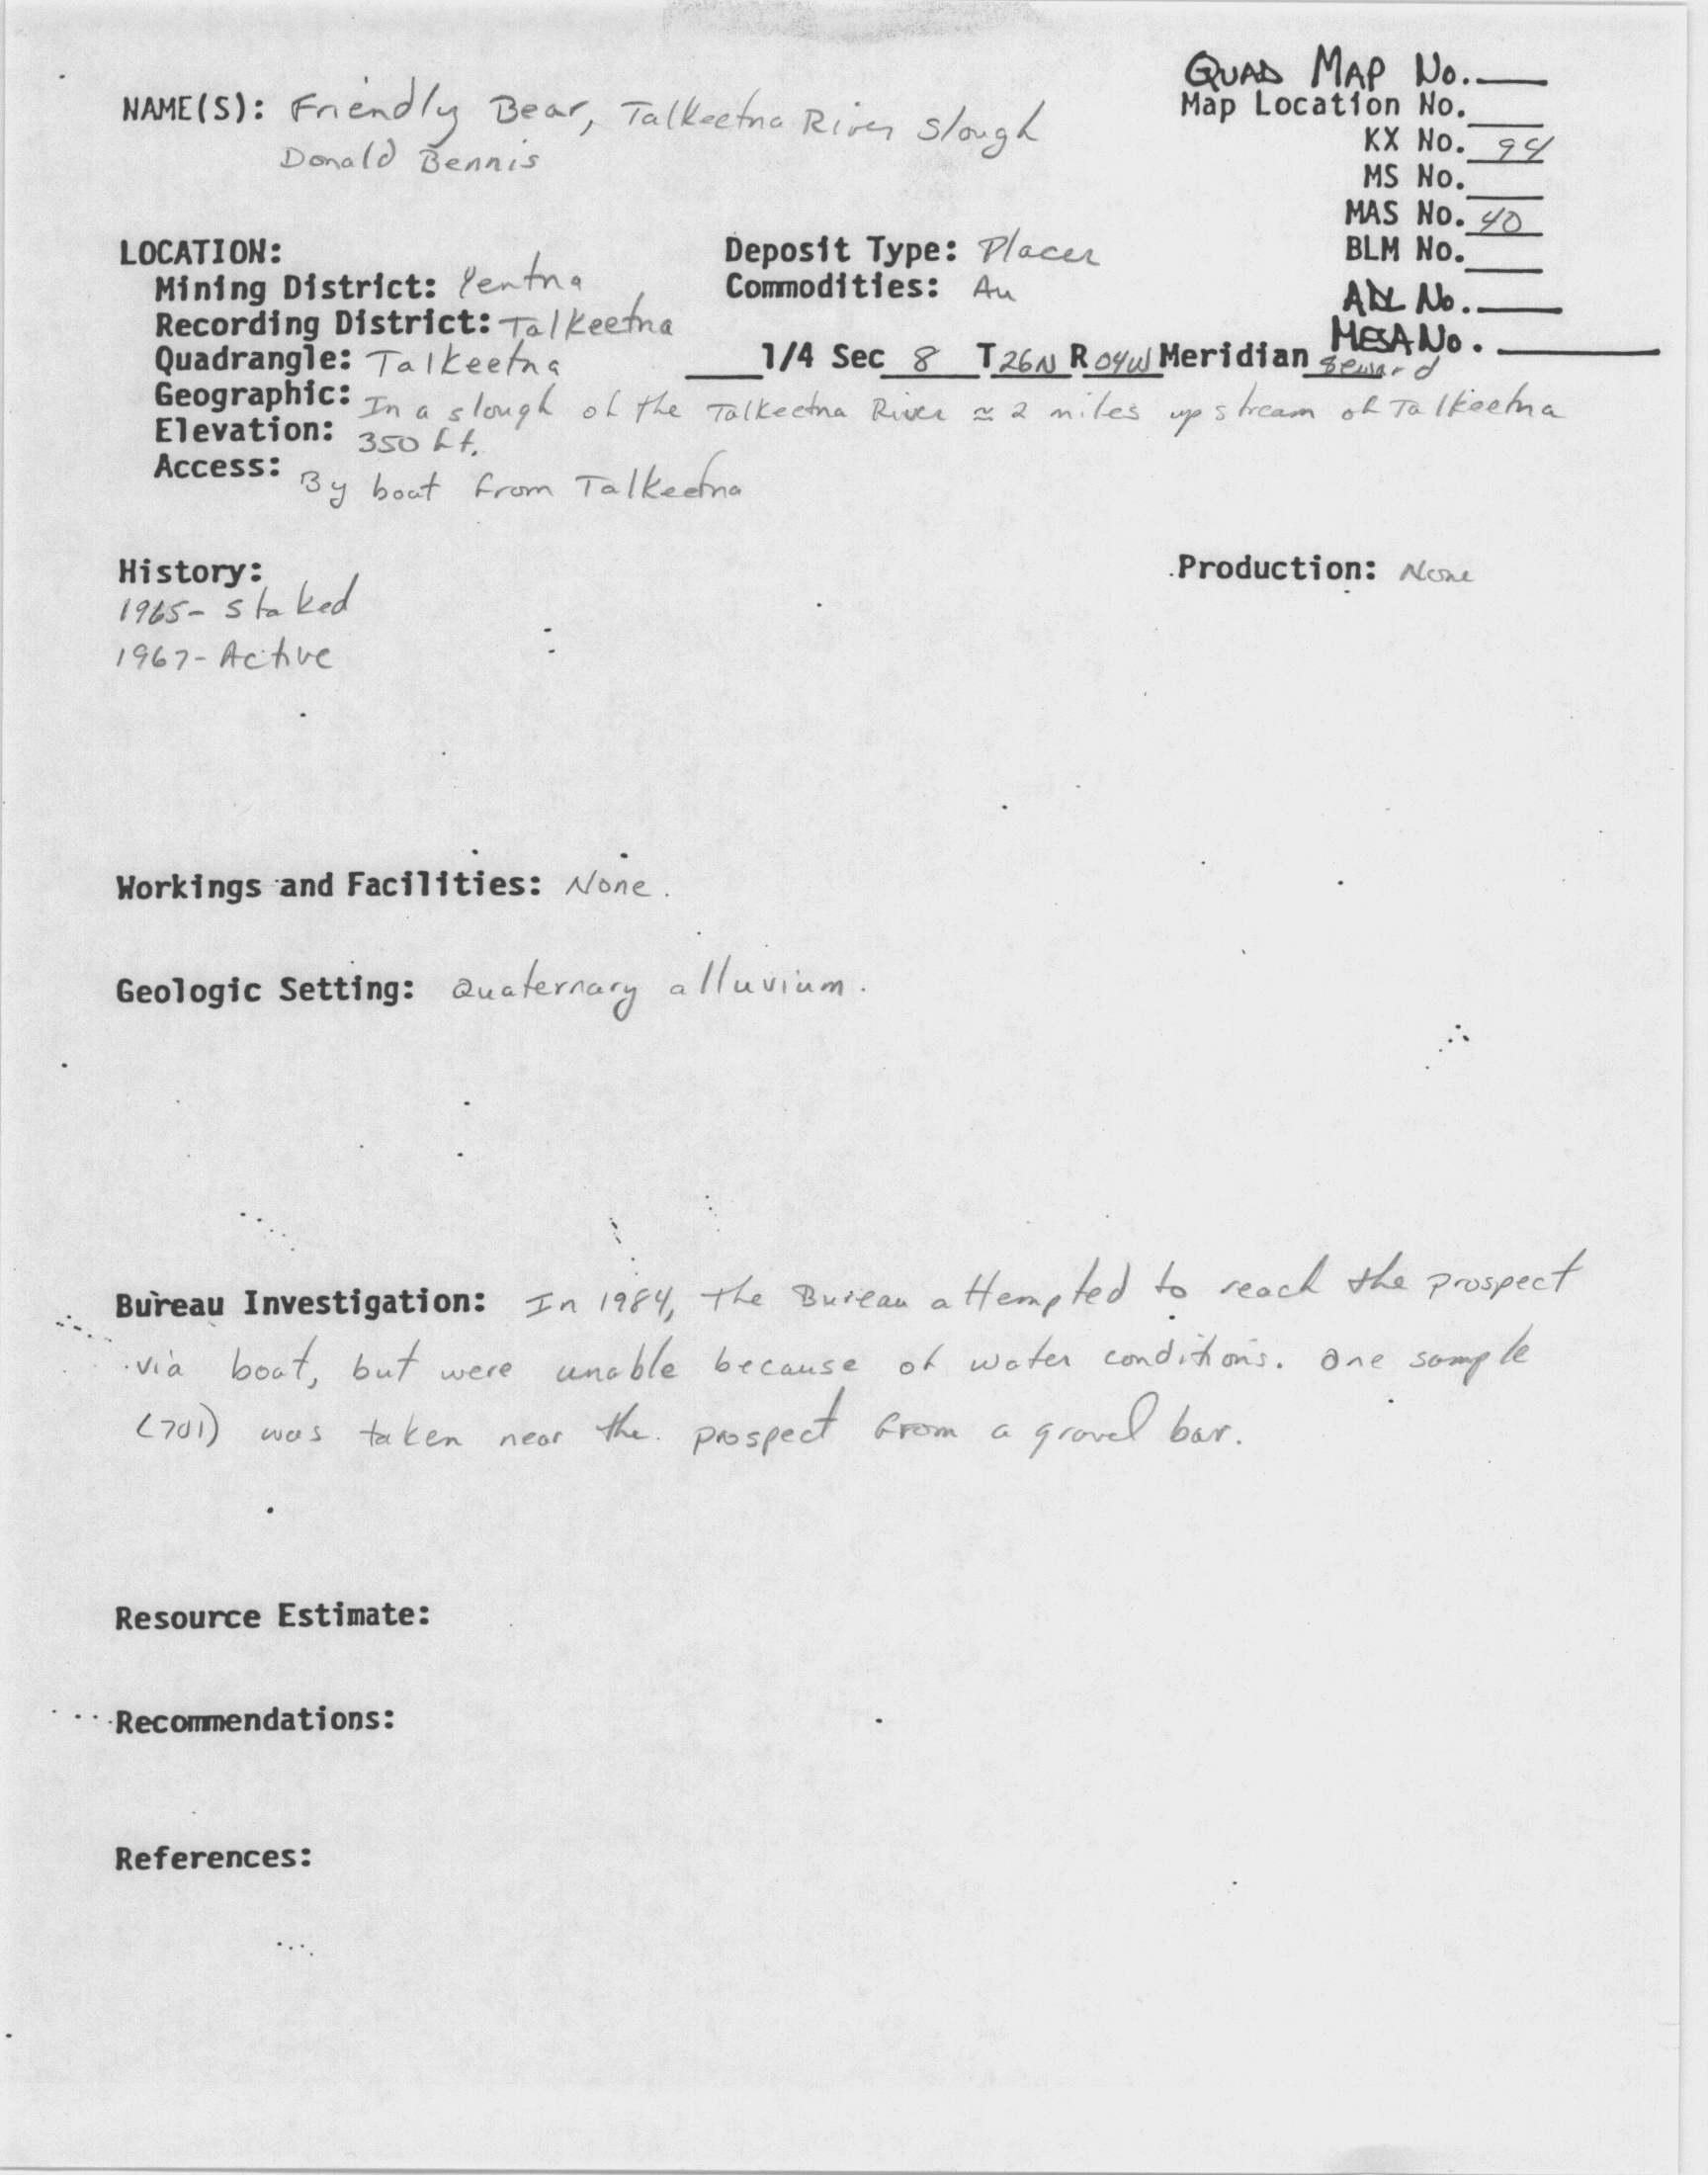 QUAD MAP No.
NAME(S): Friendly Bear, Talkeetna River Slough
Donald Bennis
Map Location No.
KX No. 94
MS No.
MAS No. 40
BLM No.
ADL No.
MESA No.
LOCATION:
Mining District: Yentna
Recording District: Talkeetna
Quadrangle: Talkeetna
Deposit Type: Placer
Commodities: Au
1/4 Sec 8 T 26N R 04W Meridian Seward
Geographic: In a slough of the Talkeetna River ≈ 2 miles upstream of Talkeetna
Elevation: 350 ft.
Access: By boat from Talkeetna
History:
1965- Staked
1967- Active
Production: None
Workings and Facilities: None.
Geologic Setting: Quaternary alluvium.
Bureau Investigation: In 1984, the Bureau attempted to reach the prospect
via boat, but were unable because of water conditions. One sample
(701) was taken near the prospect from a gravel bar.
Resource Estimate:
Recommendations:
References: